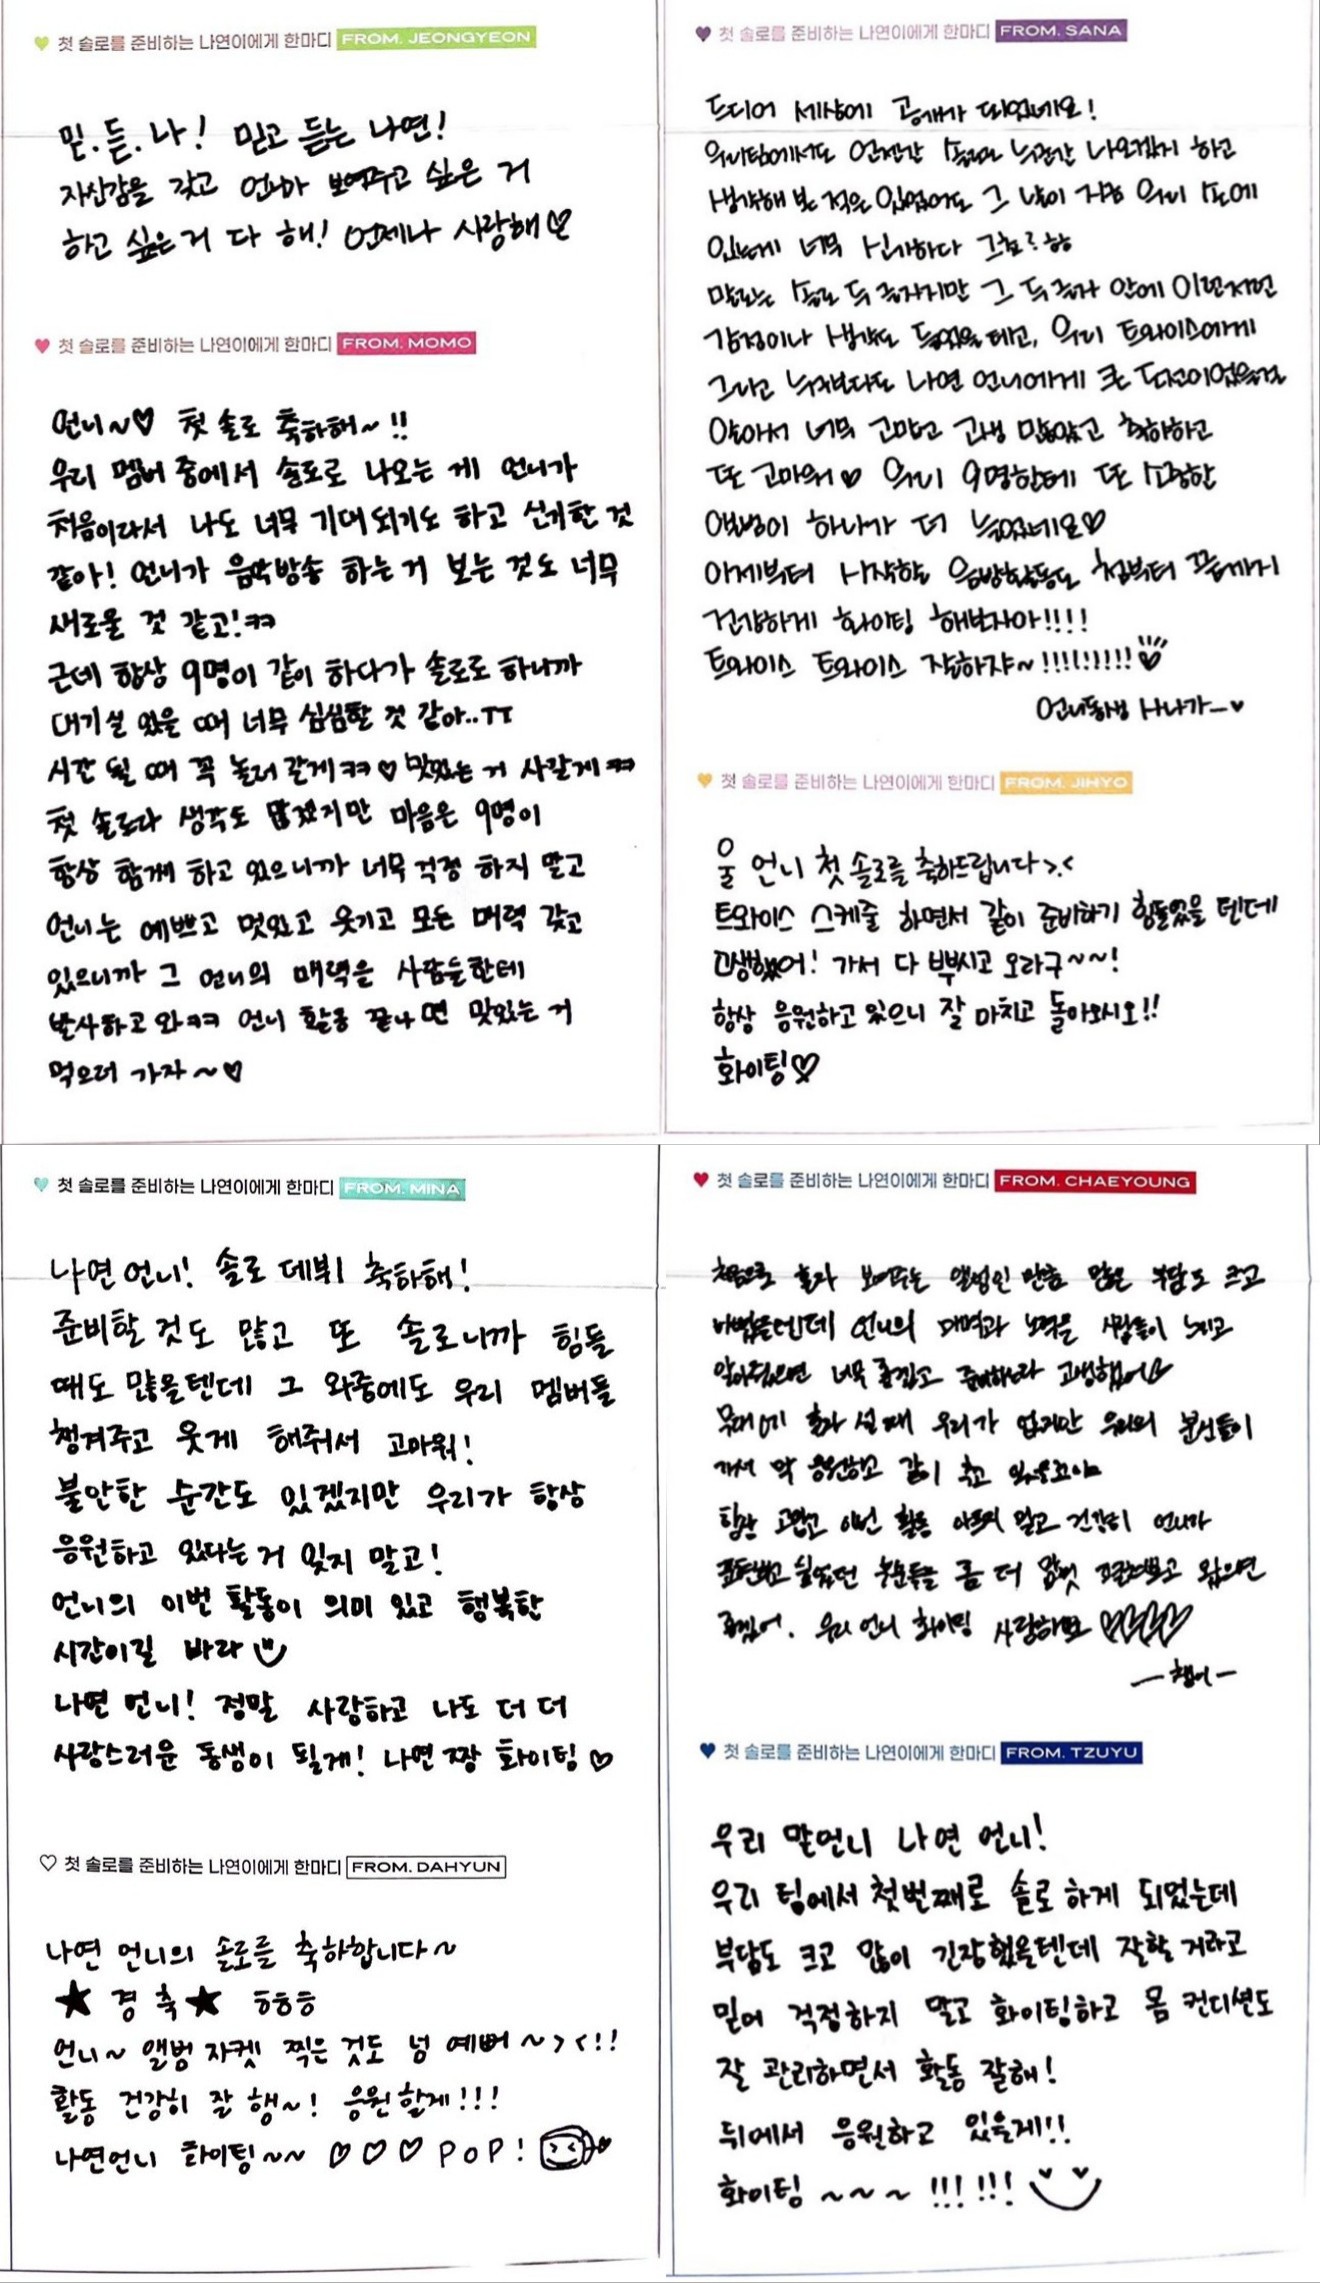 첫 솔로를 준비하는 나연이에게 한마디 FROM. JEONGYEON
믿.듣.나! 믿고 듣는 나연!
자신감을 갖고 언니가 보여주고 싶은 거
하고 싶은 거 다 해! 언제나 사랑해♡
첫 솔로를 준비하는 나연이에게 한마디 FROM. MOMO
언니~♡ 첫 솔로 축하해~!!
우리 멤버 중에서 솔로로 나오는 게 언니가
처음이라서 나도 너무 기대되기도 하고 신기한 것
같아! 언니가 음악방송 하는 거 보는 것도 너무
새로울 것 같고!ㅋㅋ
근데 항상 9명이 같이 하다가 솔로로 하니까
대기실 있을 때 너무 심심할 것 같아..ㅠㅠ
시간 될 때 꼭 놀러 갈게ㅋㅋ♡ 맛있는 거 사갈게ㅋㅋ
첫 솔로라 생각도 많겠지만 마음은 9명이
항상 함께 하고 있으니까 너무 걱정 하지 말고
언니는 예쁘고 멋있고 웃기고 모든 매력 갖고
있으니까 그 언니의 매력을 사람들한테
발사하고 와ㅋㅋ 언니 활동 끝나면 맛있는 거
먹으러 가자~♡
첫 솔로를 준비하는 나연이에게 한마디 FROM. SANA
드디어 세상에 공개가 되었네요!
우리팀에서도 언젠간 솔로로 누군간 나오겠지 하고
생각해 본 적은 있었어도 그 날이 지금 우리 눈에
있는게 너무 신기하다 그쵸?ㅎㅎ
말로는 솔로 두 글자지만 그 두 글자 안에 이런저런
감정이나 생각도 들었을 테고, 우리 트와이스에게
그리고 누구보다도 나연 언니에게 큰 도전이었을걸
알아서 너무 고맙고 고생 많았고 축하하고
또 고마워♡ 우리 9명한테 또 소중한
앨범이 하나가 더 늘었네요♡
이제부터 시작할 음방활동도 첨부터 끝까지
건강하게 화이팅 해보자아!!!!
트와이스 트와이스 잘하쟈~!!!!!!!!!♡
언니동생 사나가ㅡ♥
첫 솔로를 준비하는 나연이에게 한마디 FROM. JIHYO
울 언니 첫 솔로를 축하드립니다>.<
트와이스 스케줄 하면서 같이 준비하기 힘들었을 텐데
고생했어! 가서 다 뿌시고 오라구~~!
항상 응원하고 있으니 잘 마치고 돌아오시오!!
화이팅♡
첫 솔로를 준비하는 나연이에게 한마디 FROM. MINA
나연 언니! 솔로 데뷔 축하해!
준비할 것도 많고 또 솔로니까 힘들
때도 많을텐데 그 와중에도 우리 멤버들
챙겨주고 웃게 해줘서 고마워!
불안한 순간도 있겠지만 우리가 항상
응원하고 있다는 거 잊지 말고!
언니의 이번 활동이 의미 있고 행복한
시간이길 바라
나연 언니! 정말 사랑하고 나도 더 더
사랑스러운 동생이 될게! 나연 짱 화이팅♡
첫 솔로를 준비하는 나연이에게 한마디 FROM. DAHYUN
나연 언니의 솔로를 축하합니다~
★경축★ ㅎㅎㅎ
언니~ 앨범 자켓 찍은 것도 넘 예뻐~><!!
활동 건강히 잘 행~! 응원할게!!!
나연언니 화이팅~~ ♡♡♡ POP!
첫 솔로를 준비하는 나연이에게 한마디 FROM. CHAEYOUNG
처음으로 혼자 보여주는 앨범인 만큼 많은 부담도 크고
어려웠을텐데 언니의 매력과 노력을 사람들이 느끼고
알아줬으면 너무 좋겠고 준비하느라 고생했어♡
무대에 혼자 설 때 우리가 없지만 우리의 분신들이
가서 막 응원하고 같이 춤추고 있을꼬야
힘찬 이번 활동 아프지 말고 건강히 언니가
표현하고 싶었던 부분들을 좀 더 맘껏 보고 왔으면
좋겠어. 우리 언니 화이팅 사랑하묘 ♡♡♡♡
—챙이—
첫 솔로를 준비하는 나연이에게 한마디 FROM. TZUYU
우리 맏언니 나연 언니!
우리 팀에서 첫번째로 솔로 하게 되었는데
부담도 크고 많이 긴장했을텐데 잘할 거라고
믿어 걱정하지 말고 화이팅하고 몸 컨디션도
잘 관리하면서 활동 잘해!
뒤에서 응원하고 있을게!!
화이팅~~~!!! !!!